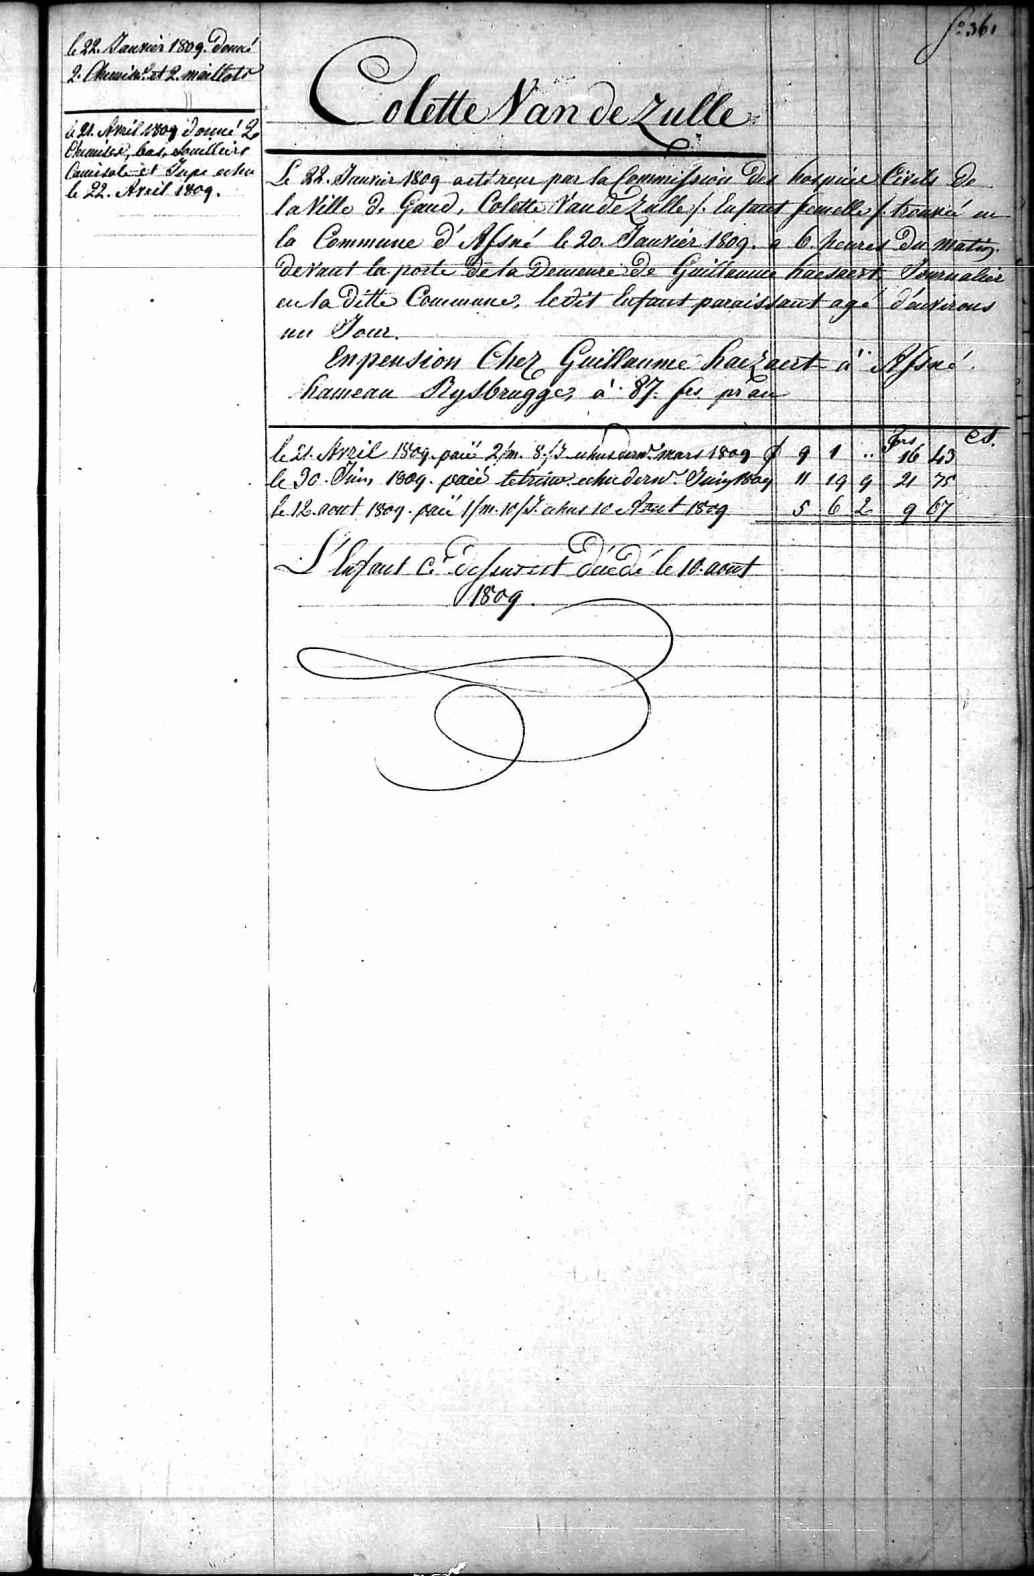 fo 361
le 22. Janvier 1809. donné
2. Chemis. et 2. maillots
le 21. Avril 1809 donné 2
Chemises, bas, Souilleirs
Camisole et Jupe echu
le 22. Avril 1809.
Colette Van de Zulle
Le 22. Janvier 1809 a été reçue par la Commission des hospices Civils de
la Ville de Gand, Colette Van de Zulle /: Enfant femelle /: trouvée en
la Commune d'Afsné le 20. Janvier 1809. a 6 heures du matin,
devant la porte de la Demeure de Guillaume haesaert, Journalier
en la ditte Commune, ledit Enfant paraissant agé d'environs
un Jour.
En pension Chez Guillaume haezaert à Afsné,
hameau Rysbrugge, à 87. frs pr an
frs ct.
le 21. Avril 1809. paié 2/m. 8./J. echus dernr. mars 1809 9 1 .. 16 43
le 30. Juin 1809. paié le trim. echu dernr. Juin 1809 11 19 9 21 75
le 12. aout 1809. paié 1/m. 10/J. echus 10 Aout 1809 5 6 2 9 67
L'Enfant Ci dessus est décédé le 10. aout
1809.